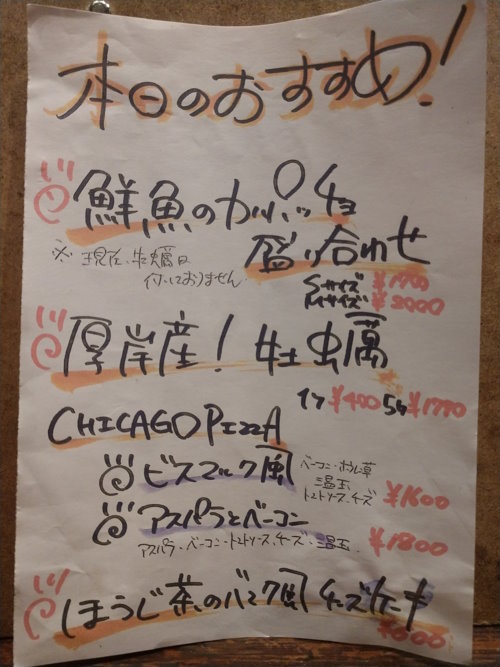 本日のおすすめ!
鮮魚のカルパッチョ
盛り合わせ
※現在、牡蠣は
付いておりません
Sサイズ ¥1700
Mサイズ ¥2000
厚岸産! 牡蠣
1ヶ ¥400 5ヶ ¥1790
CHICAGO PIZZA
ビスマルク風
ベーコン・ホウレン草
温玉
トマトソース、チーズ
¥1600
アスパラとベーコン
アスパラ・ベーコン・トマトソース、チーズ・温玉
¥1800
ほうじ茶のバスク風チーズケーキ
¥600